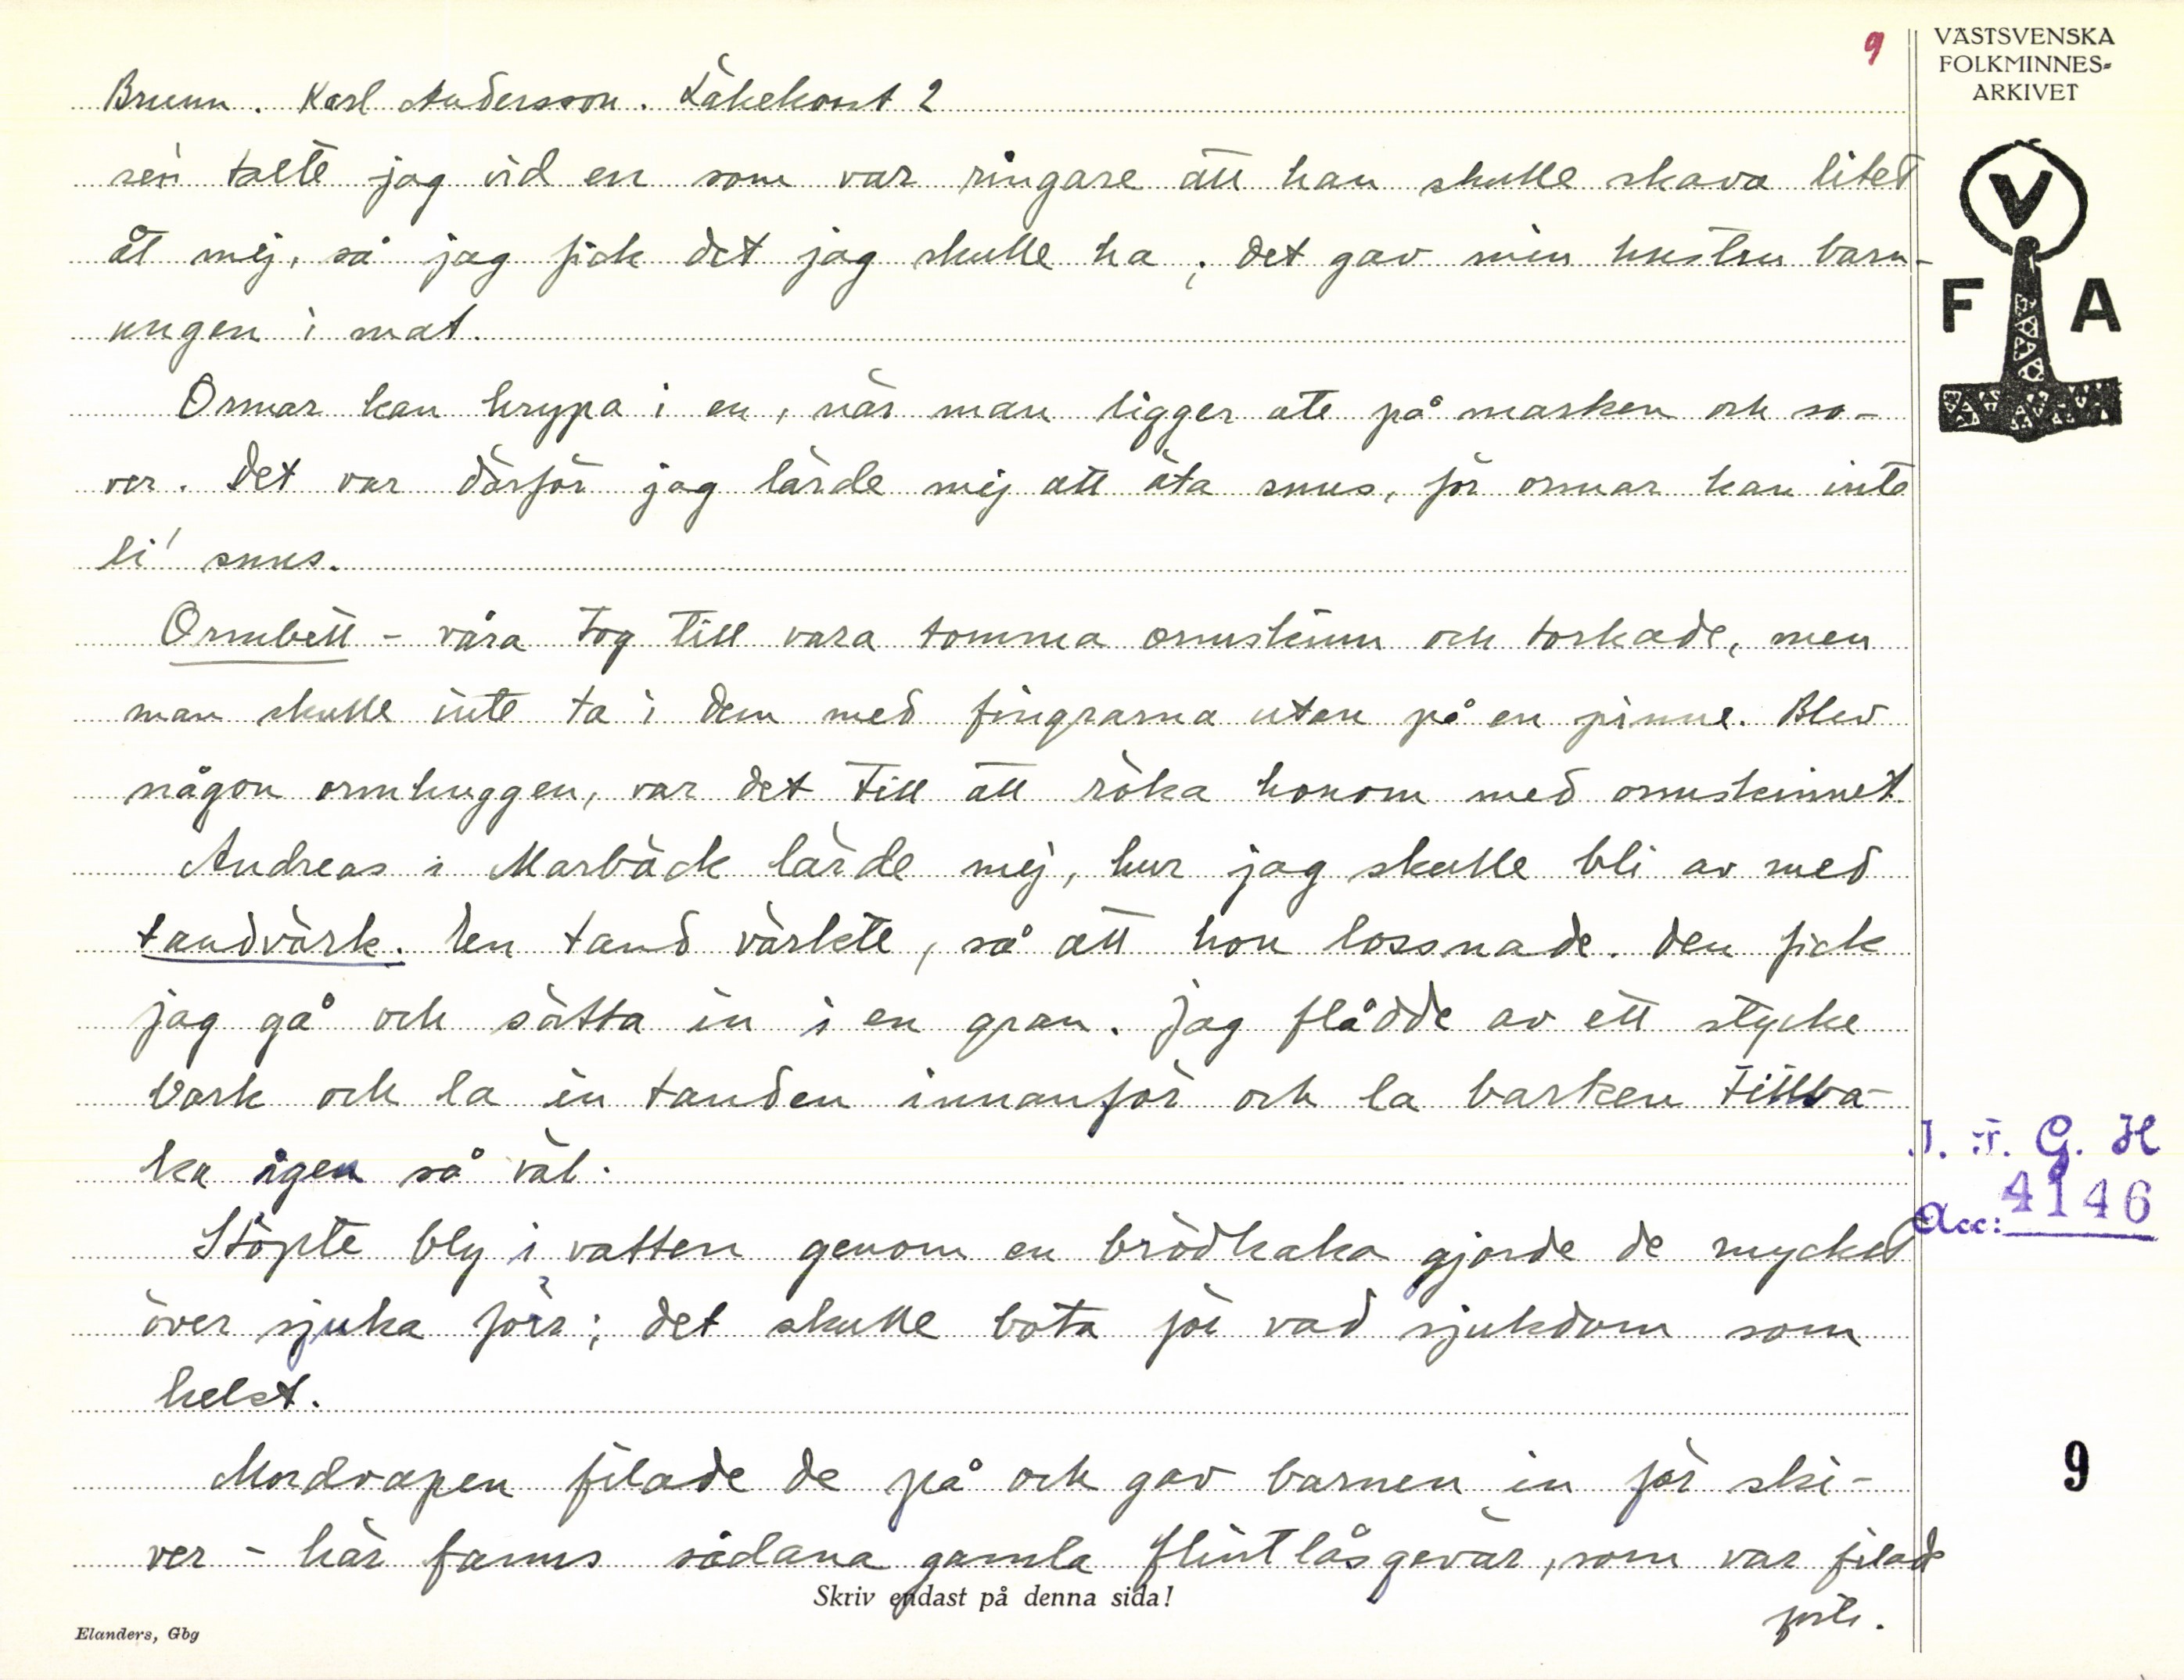 9
VÄSTSVENSKA
FOLKMINNES-
ARKIVET
V
F A
Brunn. Karl Andersson. Läkekonst 2
sen talte jag vid en som var ringare att han skulle skava litet
åt mej, så jag fick det jag skulle ha; det gav min hustru barn-
ungen i mat.
Ormar kan krypa i en, när man ligger ute på marken och so-
ver. Det var därför jag lärde mej att äta snus, för ormar kan inte
li' snus.
Ormbett - våra tog till vara tomma ormskinn och torkade, men
man skulle inte ta i dem med fingrarna utan på en pinne. Blev
någon ormhuggen, var det till att röka honom med ormskinnet.
Andreas i Marbäck lärde mej, hur jag skulle bli av med
tandvärk. En tand värkte, så att hon lossnade. Den fick
jag gå och sätta in i en gran. Jag flådde av ett stycke
bark och la in tanden innanför och la barken tillba-
ka igen så väl.
Stöpte bly i vatten genom en brödkaka gjorde de mycket
över sjuka förr; det skulle bota för vad sjukdom som
helst.
Mordvapen filade de på och gav barnen in för ski-
ver - här fanns sådana gamla flintlåsgevär, som var filade
forts.
I. F. G. H
Acc: 4146
9
Skriv endast på denna sida!
Elanders, Gbg